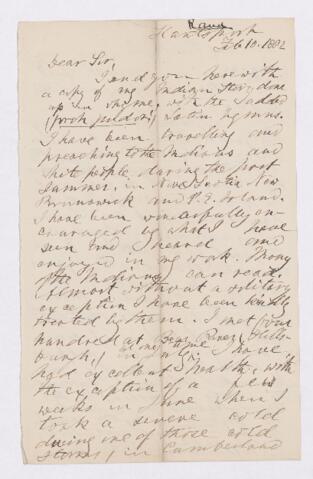 Rand
Hantsport
Feb 10. 1882
Dear Sir,
I send you herewith
a copy of my Indian Story done
up in rhyme, with the added
Latin hymns.
I have been travelling and
preaching to the Indians and
white people, during the past
Summer, in Nova Scotia New
Brunswick and P. E. Island.
I have been wonderfully en-
couraged by what I have
seen and heard and
enjoyed in my work. Many
of the Indians can read.
Almost without a solitary
exception I have been kindly
treated by them. I met four
hundred at Bear River,
in July. I have
had excellent health, with
the exception of a few
weeks in June when I
took a severe cold
during one of those cold
storms, in Cumberland